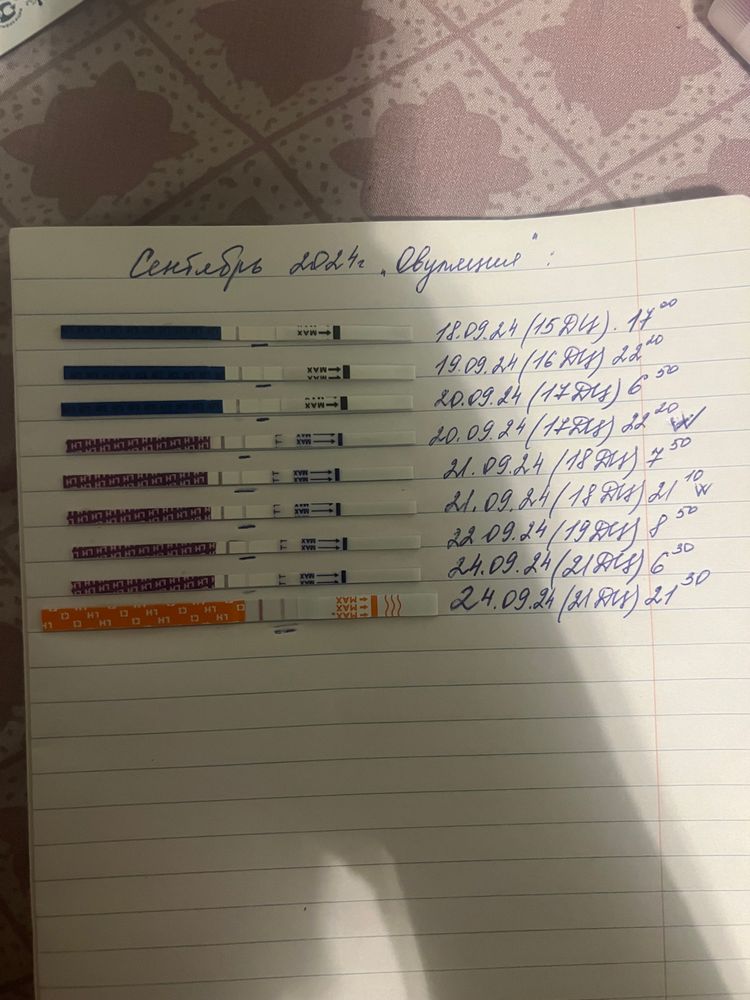 Сентябрь 2024г „Овуляция“ :
MAX 18.09.24 (15 ДЦ). 17⁰⁰
MAX 19.09.24 (16 ДЦ) 22²⁰
MAX 20.09.24 (17 ДЦ) 6⁵⁰
LH LH LH MAX 20.09.24 (17 ДЦ) 22²⁰
LH LH LH MAX 21.09.24 (18 ДЦ) 7⁵⁰
LH LH LH MAX 21.09.24 (18 ДЦ) 21¹⁰
LH LH LH MAX 22.09.24 (19 ДЦ) 8⁵⁰
LH LH LH MAX 24.09.24 (21 ДЦ) 6³⁰
LH LH LH MAX MAX MAX 24.09.24 (21 ДЦ) 21³⁰